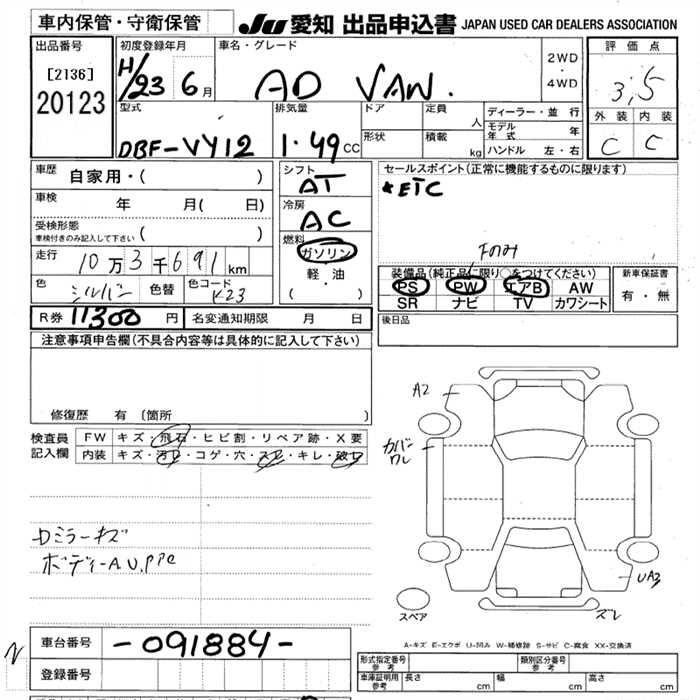 車内保管・守衛保管
JU 愛知 出品申込書 JAPAN USED CAR DEALERS ASSOCIATION
出品番号
[2136]
20123
初度登録年月
H/23 6月
車名・グレード
AD VAN.
2WD
・
4WD
評価点
3,5
外装 内装
C C
型式
DBF-VY12
排気量
1.49cc
ドア
形状
定員
人
積載
kg
ディーラー・並行
モデル年式 年
ハンドル 左・右
車歴
自家用・( )
車検
年 月( 日)
受検形態
車検付きのみ記入して下さい ( )
走行
10万3千691km
色
シルバー
色替
色コード
K23
シフト
AT
冷房
AC
燃料
ガソリン
軽・油
( ・ )
セールスポイント(正常に機能するものに限ります)
*ETC
Fのみ
装備品(純正品に限り○をつけてください)
PS PW エアB AW
SR ナビ TV カワシート
新車保証書
有・無
R券 11300円
名変通知期限 月 日
後日品
注意事項申告欄(不具合内容等は具体的に記入して下さい)
修復歴 有(箇所 )
検査員
記入欄
FW キズ・飛石・ヒビ割・リペア跡・X要
内装 キズ・汚レ・コゲ・穴・スレ・キレ・破レ
A2
カバー
ワレ
UA3
ズレ
スペア
ボディーAU.PPC
A-キズ E-エクボ U-凹み W-補修跡 S-サビ C-腐食 XX-交換済
車台番号
-091884-
登録番号
形式指定番号
参考
類別区分番号
参考
車庫証明用
参考
長さ cm
幅 cm
高さ cm